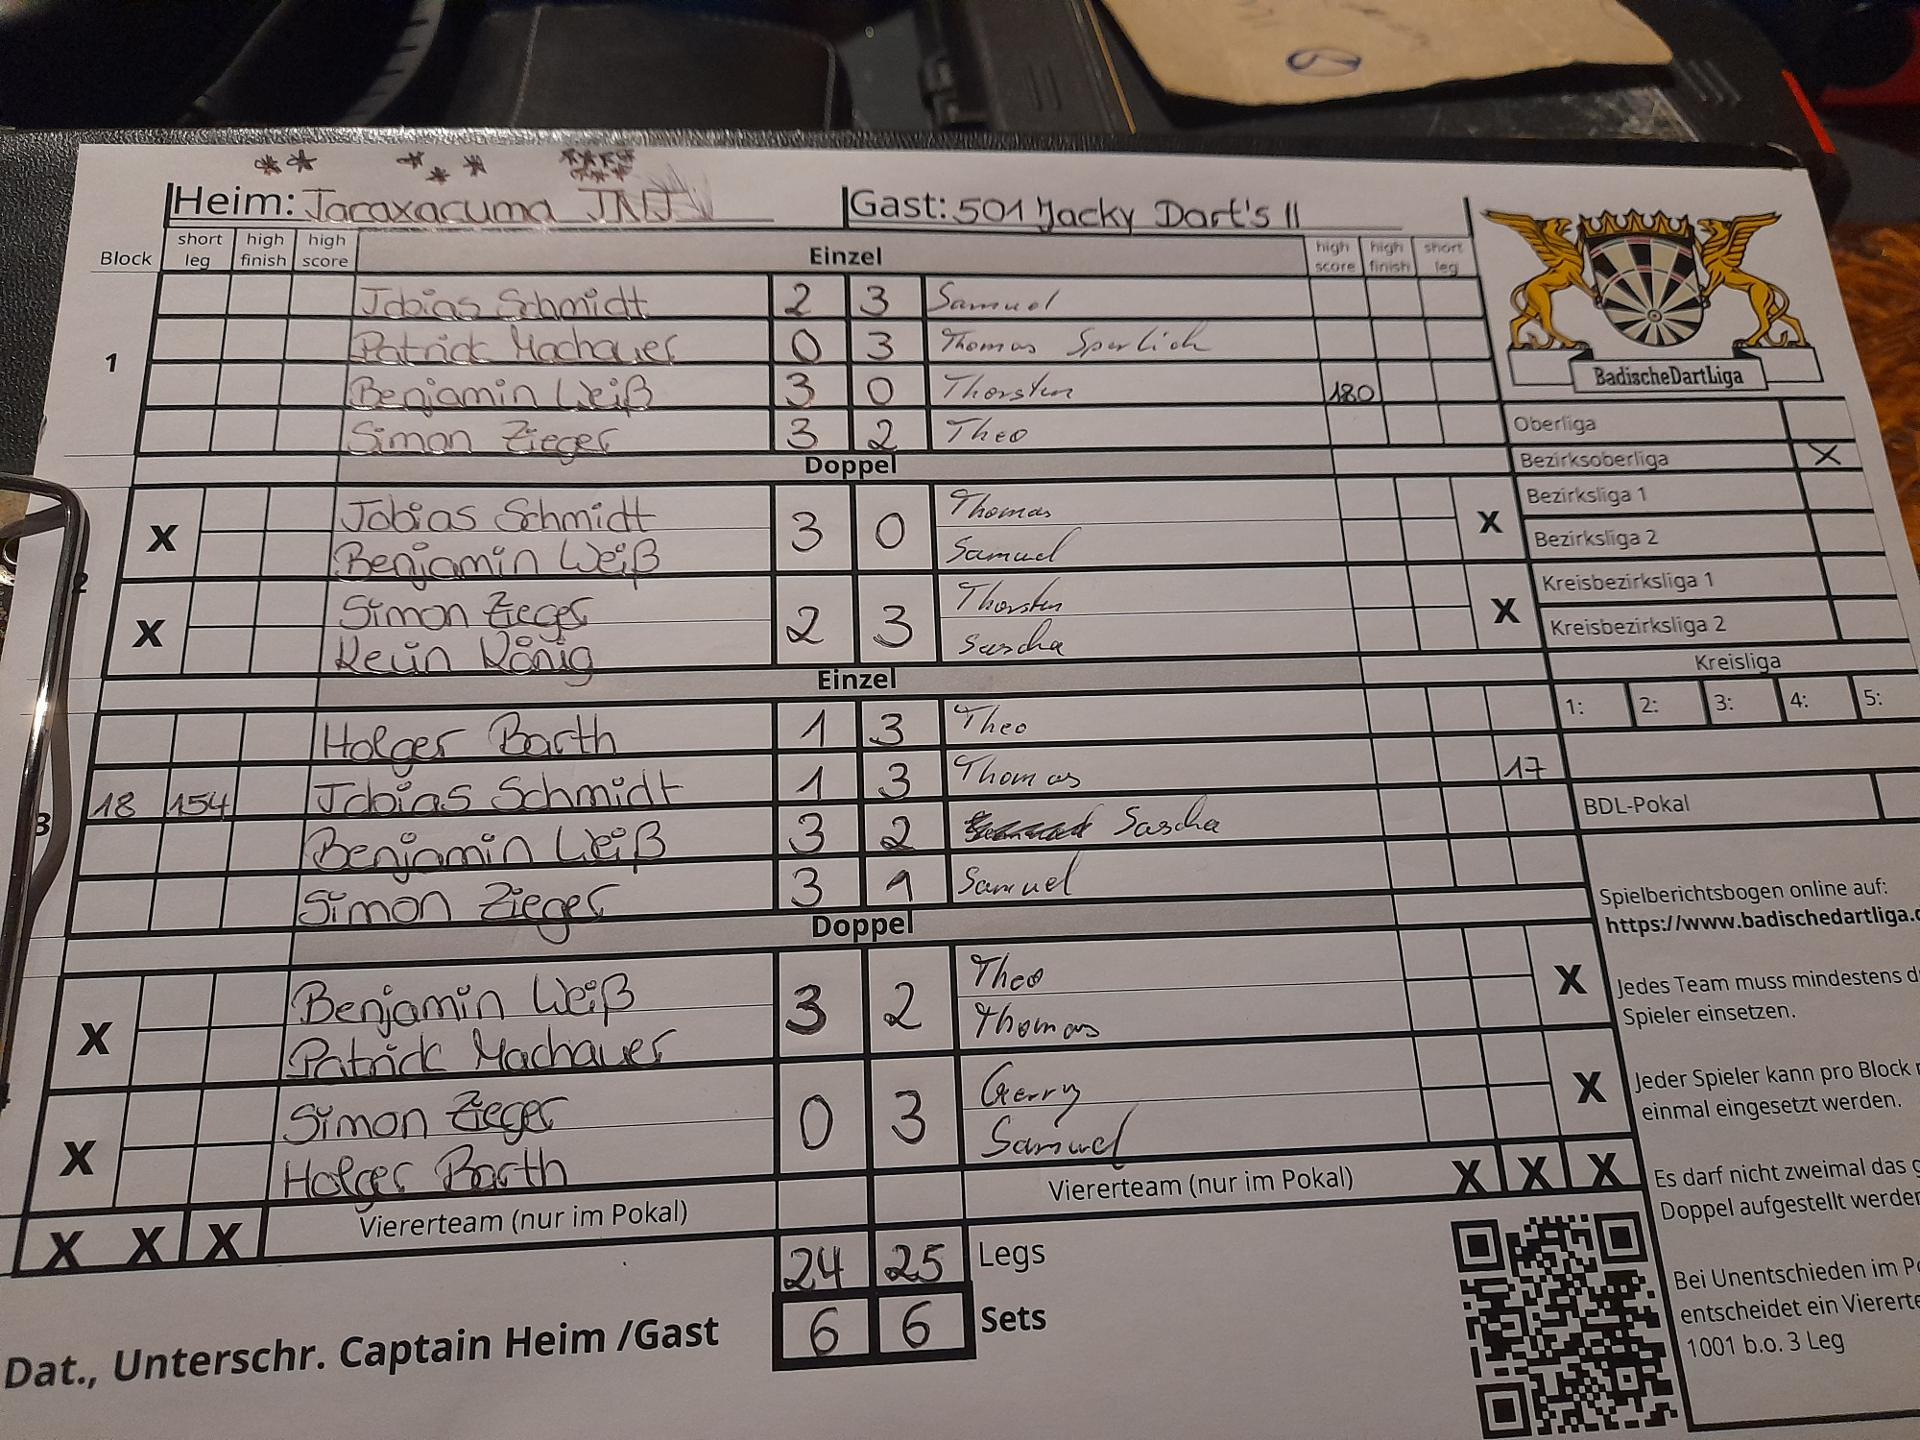 Heim: Taraxacuma JNJ
Gast: 501 Jacky Dart's II
Block short leg high finish high score Einzel high score high finish short leg
1
Tobias Schmidt 2 3 Samuel
Patrick Machauer 0 3 Thomas Sperlich
Benjamin Weiß 3 0 Thorsten 180
Simon Zieger 3 2 Theo
Doppel
2
X Tobias Schmidt 3 0 Thomas X
Benjamin Weiß Samuel
X Simon Zieger 2 3 Thorsten X
Kevin König Sascha
Einzel
3
Holger Barth 1 3 Theo
18 154 Tobias Schmidt 1 3 Thomas 17
Benjamin Weiß 3 2 Sascha
Simon Zieger 3 1 Samuel
Doppel
X Benjamin Weiß 3 2 Theo X
Patrick Machauer Thomas
X Simon Zieger 0 3 Gerry X
Holger Barth Samuel
X X X Viererteam (nur im Pokal) Viererteam (nur im Pokal) X X X
24 25 Legs
6 6 Sets
Dat., Unterschr. Captain Heim /Gast
BadischeDartLiga
Oberliga
Bezirksoberliga X
Bezirksliga 1
Bezirksliga 2
Kreisbezirksliga 1
Kreisbezirksliga 2
Kreisliga
1: 2: 3: 4: 5:
BDL-Pokal
Spielberichtsbogen online auf:
https://www.badischedartliga.
Jedes Team muss mindestens
Spieler einsetzen.
Jeder Spieler kann pro Block
einmal eingesetzt werden.
Es darf nicht zweimal das
Doppel aufgestellt
Bei Unentschieden im
entscheidet ein
1001 b.o. 3 Leg